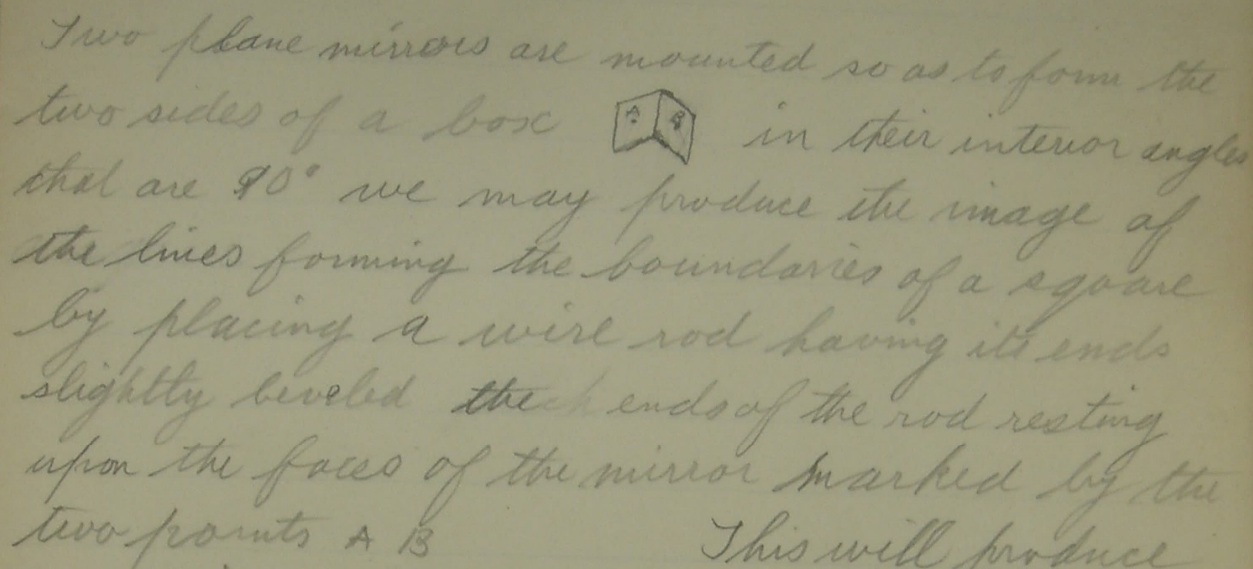 Two plane mirrors are mounted so as to form the
two sides of a box A B in their interior angles
that are 90° we may produce the image of
the lines forming the boundaries of a square
by placing a wire rod having its ends
slightly beveled the ends of the rod resting
upon the faces of the mirror marked by the
two points A B This will produce